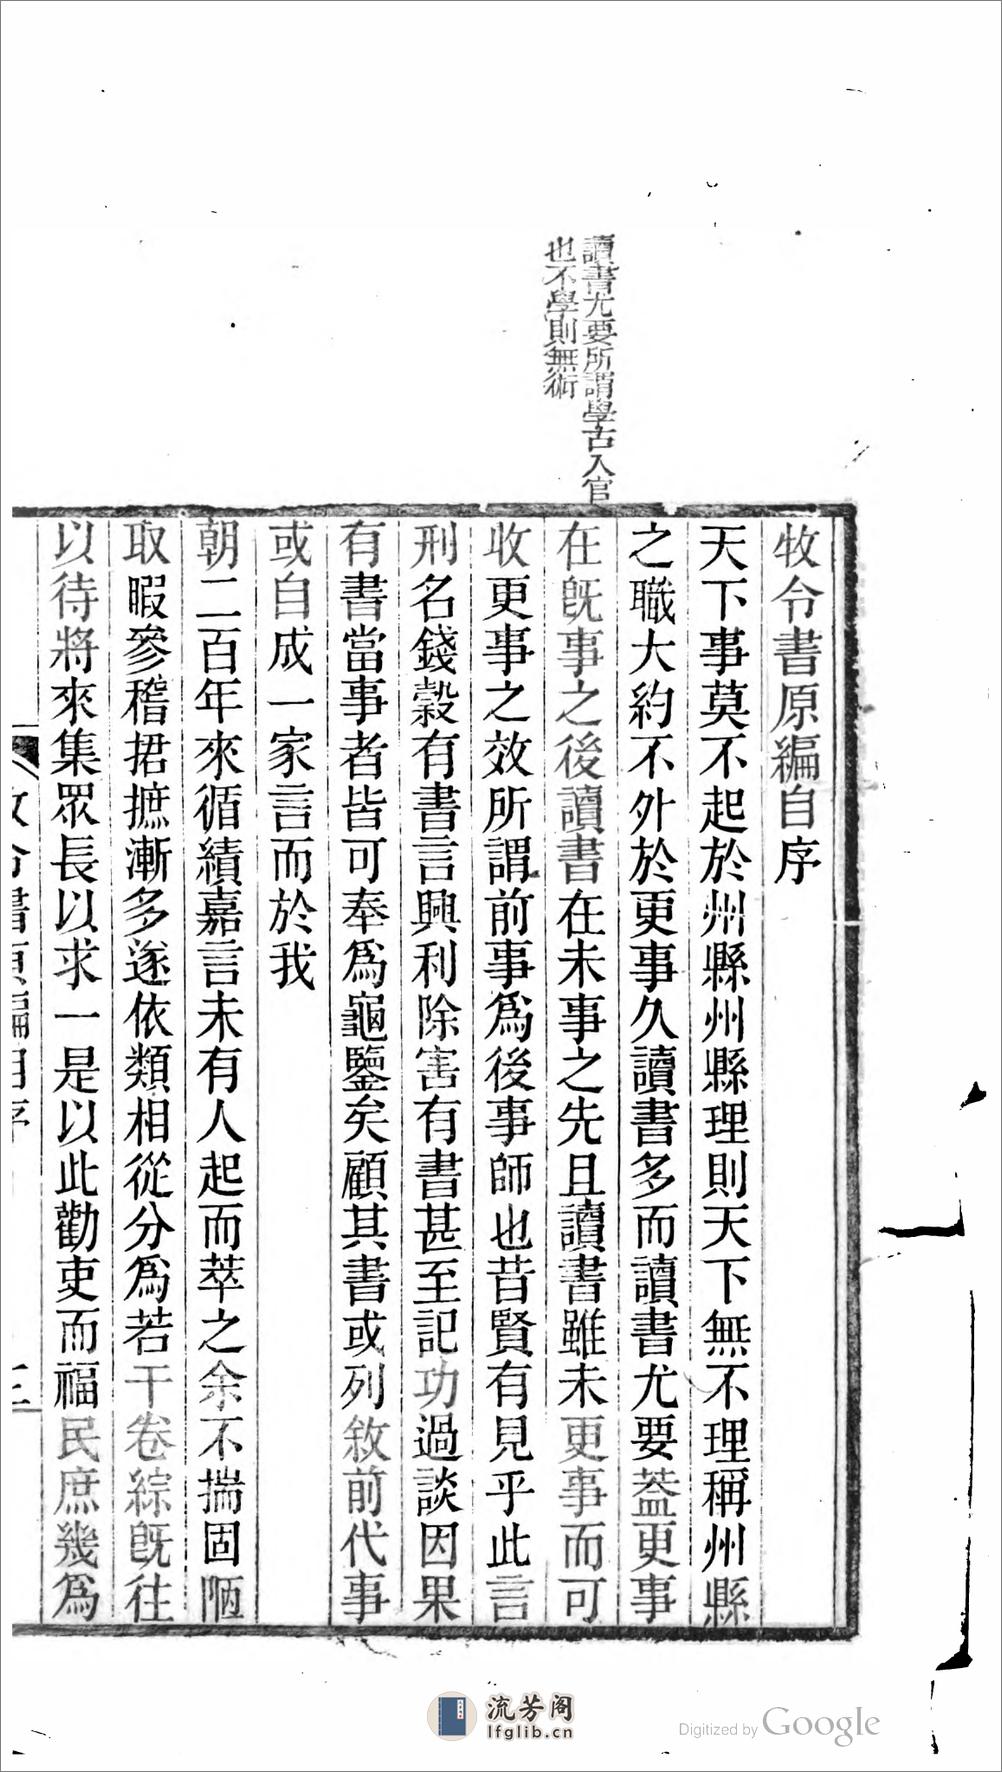 讀書尤要所謂學古入官
也不學則無術
牧令書原編自序
天下事莫不起於州縣州縣理則天下無不理稱州縣
之職大約不外於更事久讀書多而讀書尤要葢更事
在旣事之後讀書在未事之先且讀書雖未更事而可
收更事之效所謂前事爲後事師也昔賢有見乎此言
刑名錢穀有書言興利除害有書甚至記功過談因果
有書當事者皆可奉爲龜鑒矣顧其書或列敘前代事
或自成一家言而於我
朝二百年來循績嘉言未有人起而萃之余不揣固陋
取暇參稽捃摭漸多遂依類相從分爲若干卷綜旣往
以待將來集眾長以求一是以此勸吏而福民庶幾爲
牧令書原編自序
三
流芳阁
lfglib.cn
Digitized by Google